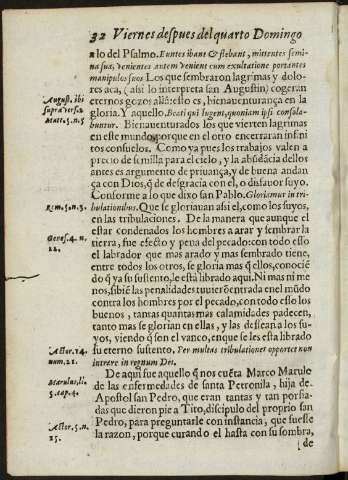 32 Viernes despues del quarto Domingo
lo del Psalmo. Euntes ibant & flebant, mittentes semi-
na sua, venientes autem venient cum exultatione portantes
manipulos suos Los que sembraron lagrimas y dolo-
res aca, (assi lo interpreta san Augustin) cogeran
eternos gozos alla: esto es, bienauenturança en la
gloria. Y aquello. Beati qui lugent, quoniam ipsi consola-
buntur. Bienauenturados los que vierten lagrimas
en este mundo, porque en el otro encerraràn infini
tos consuelos. Como ya pues los trabajos valen a
precio de semilla para el cielo, y la absdācia dellos
antes es argumento de priuança, y de buena andan
ça con Dios, q̃ de desgracia con el, o disfauor suyo.
Conforme a lo que dixo san Pablo. Gloriamur in tri-
bulationibus. Que se gloriauan assi el, como los suyos,
en las tribulaciones. De la manera que aunque el
estar condenados los hombres a arar y sembrar la
tierra, fue efecto y pena del pecado: con todo esso
el labrador que mas arado y mas sembrado tiene,
entre todos los otros, se gloria mas q̃ ellos, conocié
do q̃ ya su sustento, le està librado aqui. Ni mas ni me
nos, si biē las penalidades tuuierō entrada en el mūdo
contra los hombres por el pecado, con todo esso los
buenos, tantas quantas mas calamidades padecen,
tanto mas se glorian en ellas, y las dessean a los su-
yos, viendo q̃ son el vanco, en que se les està librado
su eterno sustento. Per multas tribulationes oportet nos
intrare in regnum Dei.
De aqui fue aquello q̃ nos cuēta Marco Marulo
de las enfermedades de santa Petronila, hija de
Apostol san Pedro, que eran tantas y tan porfia-
das que dieron pie a Tito, dicipulo del proprio san
Pedro, para preguntarle con instancia, que fuesse
la razon, porque curando el hasta con su sombra,
de
August. ibi
supra vers.
Matt. 5. n. 5
Rom. 5. n. 3.
Genes. 4. n.
12.
Actor. 14.
num. 21.
Marulus, li.
5. cap. 4.
Actor. 5. n.
15.